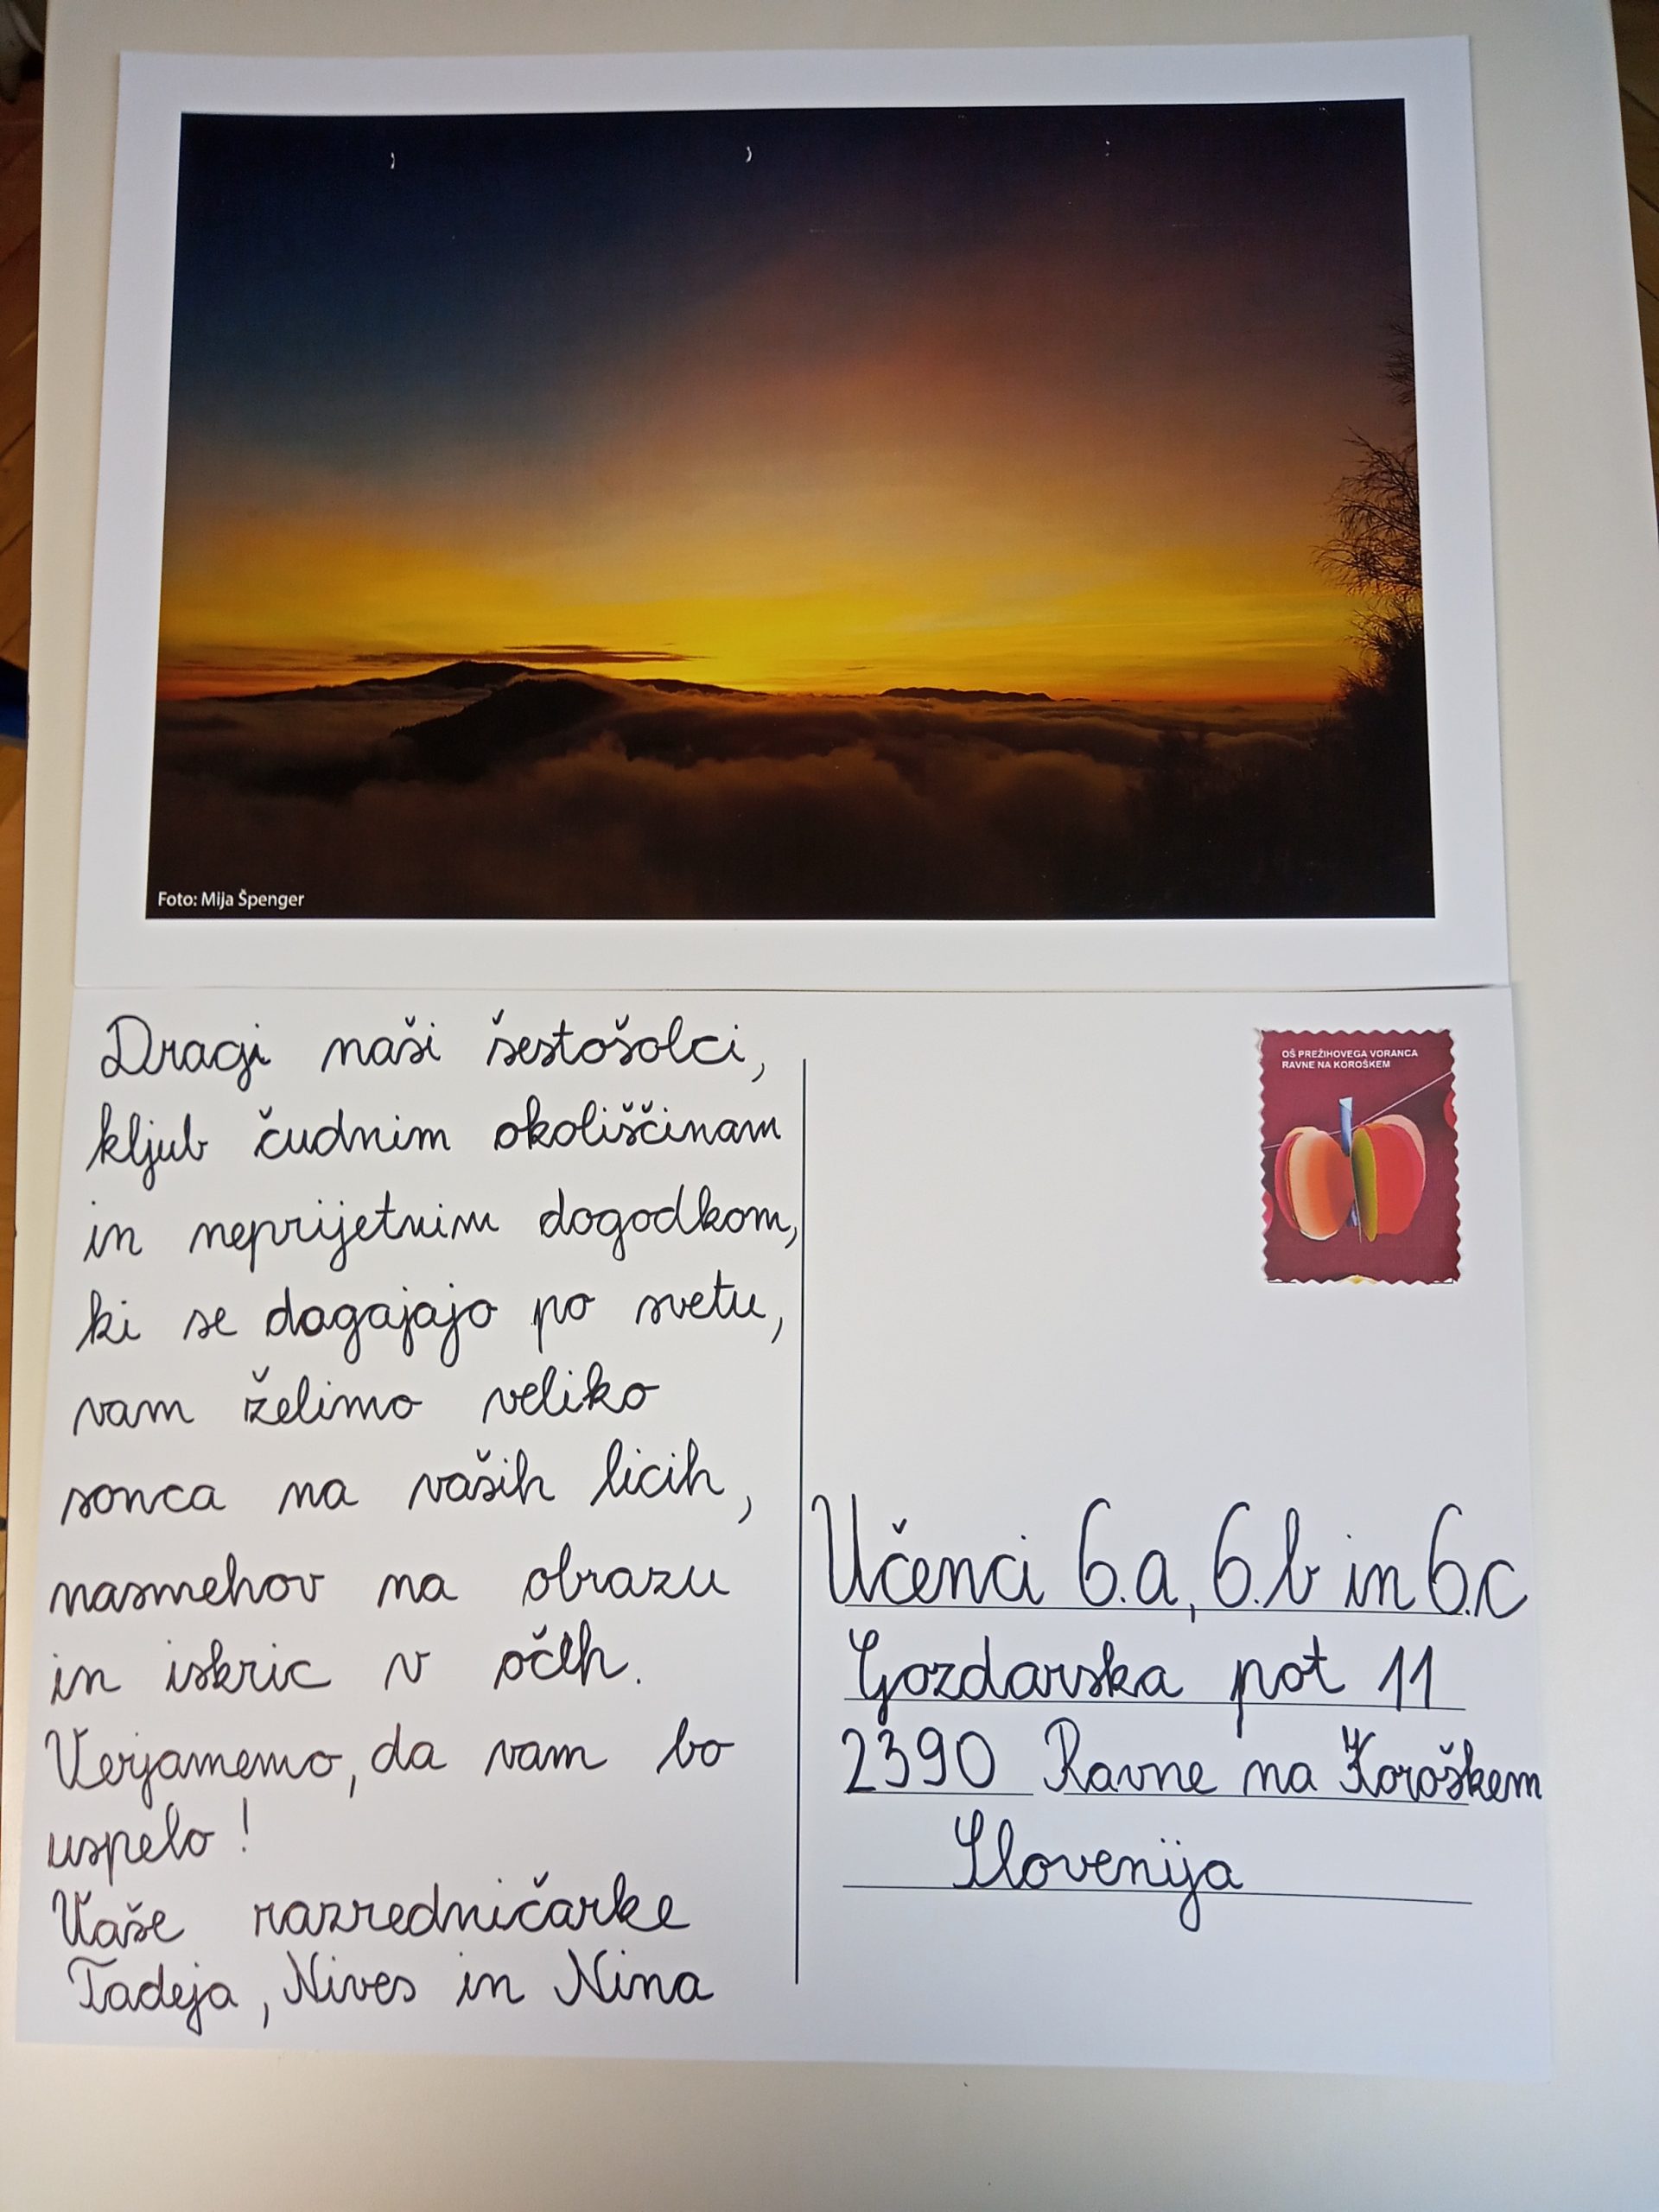 Foto: Mija Špenger
Dragi naši šestošolci,
kljub čudnim okoliščinam
in neprijetnim dogodkom,
ki se dogajajo po svetu,
vam želimo veliko
sonca na vaših licih,
nasmehov na obrazu
in iskric v očeh.
Verjamemo, da vam bo
uspelo!
Vaše razredničarke
Tadeja, Nives in Nina
OŠ PREŽIHOVEGA VORANCA
RAVNE NA KOROŠKEM
Učenci 6.a, 6.b in 6.c
Gozdarska pot 11
2390 Ravne na Koroškem
Slovenija